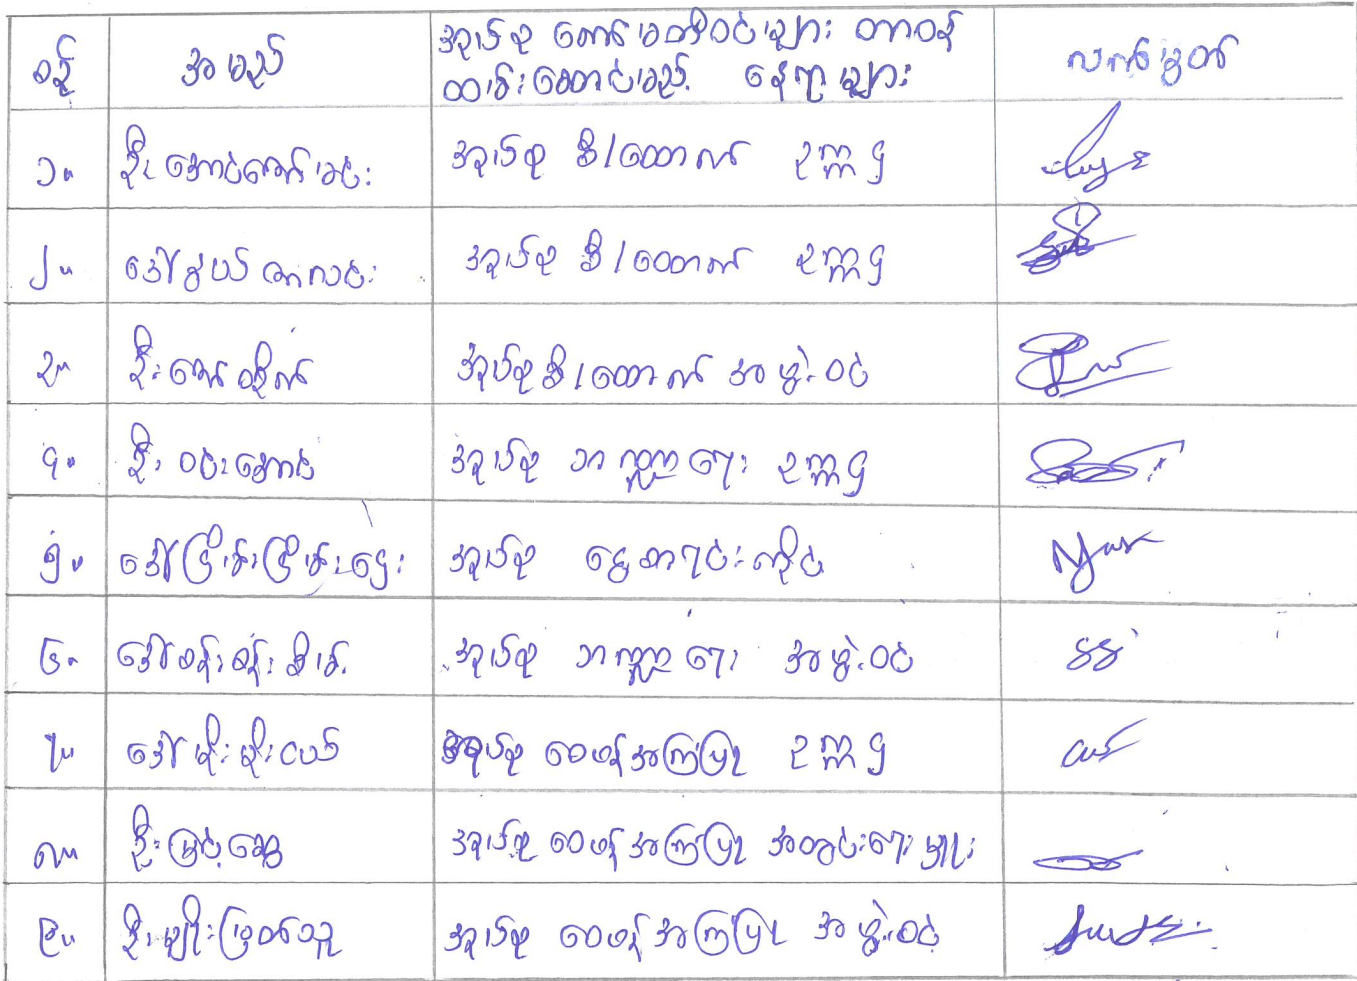 စဉ် အမည် အုပ်စု ကော်မတီဝင်များ တာဝန် လက်မှတ်
ထမ်းဆောင်မည့် နေရာများ
၁။ ဦးအောင်ကျော်မင်း အုပ်စု စီ/ထောက် ဥက္ကဌ
၂။ ဒေါ်နွယ် အုပ်စု စီ/ထောက် ဥက္ကဌ
၃။ ဦးကျော်ထိုက် အုပ်စု စီ/ထောက် အဖွဲ့ဝင်
၄။ ဦးဝင်းအောင် အုပ်စု ဘဏ္ဍာရေး ဥက္ကဌ
၅။ ဒေါ်ငြိမ်းငြိမ်းဌေး အုပ်စု ငွေစာရင်းကိုင်
၆။ ဒေါ်စန်းစန်းစိမ့် အုပ်စု ဘဏ္ဍာရေး အဖွဲ့ဝင်
၇။ ဒေါ်မိုးမိုးငယ် အုပ်စု ဝေဖန်အကြံပြု ဥက္ကဌ
၈။ ဦးမြင့်ဆွေ အုပ်စု ဝေဖန်အကြံပြု အတွင်းရေးမှူး
၉။ ဦးမျိုးမြတ်သူ အုပ်စု ဝေဖန်အကြံပြု အဖွဲ့ဝင်